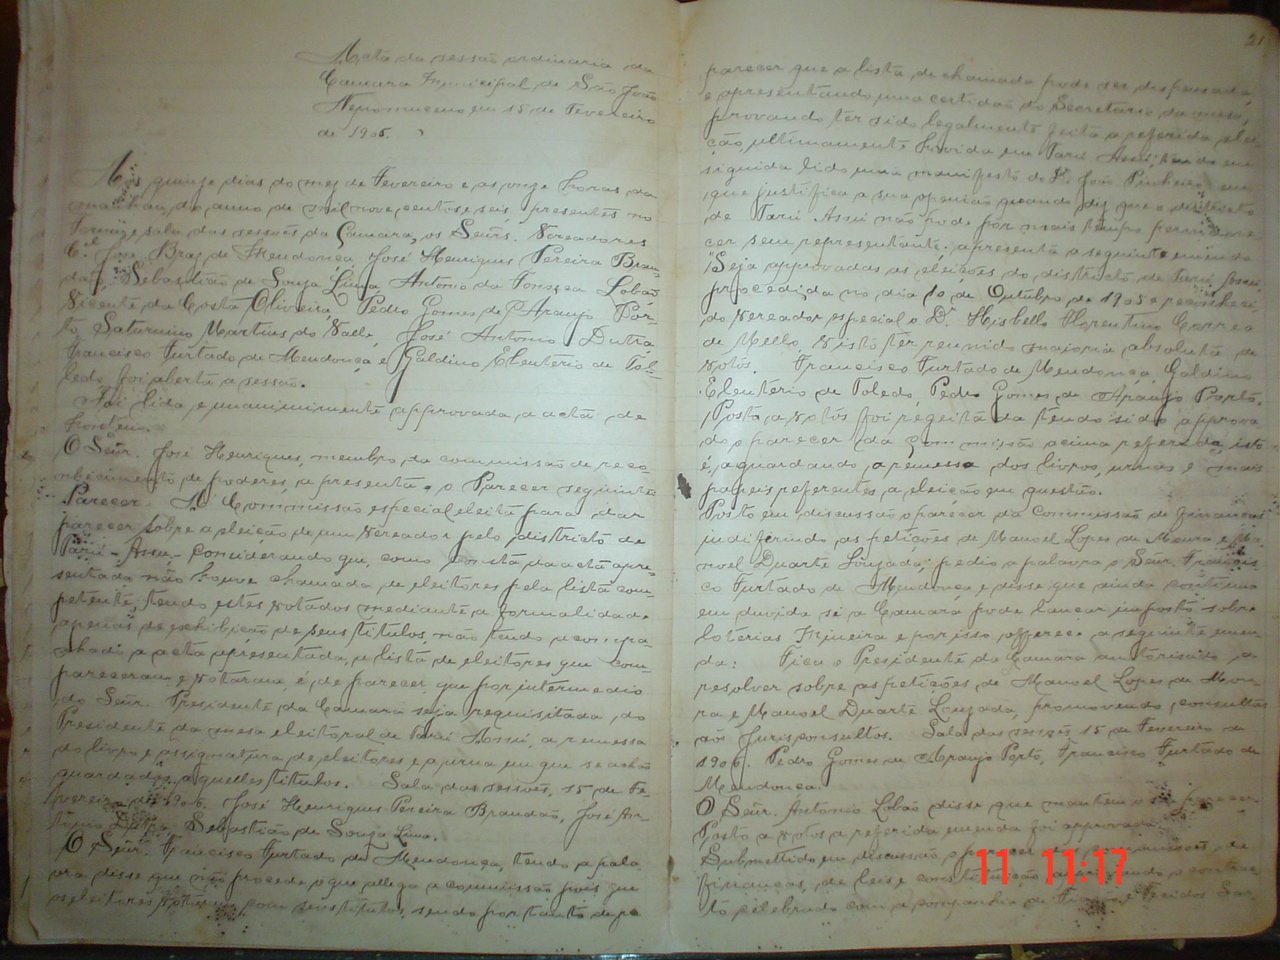 Acta da sessão ordinaria da
Camara Municipal de São João
Nepomuceno em 15 de Fevereiro
de 1906.
Aos quinze dias do mez de Fevereiro e as onze horas da
manhan, do anno de mil nove centos e seis, presentes no
Paço e sala das sessões da Camara, os Señrs. Vereadores
Cel. José Braz de Mendonça, José Henriques Pereira Bran-
dão, Sebastião de Souza Lima, Antonio da Fonseca Lobão
Vicente da Costa Oliveira, Pedro Gomes de Araujo Por-
to, Saturnino Martins do Valle, José Antonio Dutra,
Francisco Furtado de Mendonça e Galdino Eleutério de Tol-
ledo, foi aberta a sessão.
Foi lida e unanimimente approvada a acta de
hontem.
O Señr. José Henriques, membro da commissão de reco-
nhecimento de poderes, apresenta o Parecer seguinte
Parecer. A Commissão especial eleita para dar
parecer sobre a eleição de um Vereador pelo districto de
Tarú-Assu, considerando que, como consta da acta apre-
sentada não houve chamada de eleitores pela lista com-
petente, tendo estes votados mediante a formalidade
apenas de exhibição de seus titulos, não tendo acompa-
nhado a acta apresentada, a lista de eleitores que com-
pareceram e votaram, é de parecer que por intermedio
do Señr. Presidente da Camara seja requisitada, do
Presidente da mesa eleitoral de Tarú Assú, a remessa
do livro e assignatura de eleitores e a urna em que se achão
guardados aquelles titulos. Sala das sessões, 15 de Fe-
vereiro de 1906. José Henriques Pereira Brandão, José An-
tonio Dutra, Sebastião de Souza Lima.
O Señr. Francisco Furtado de Mendonça, tendo a pala-
vra disse que não procede o que allega a commissão pois que
os eleitores votaram com seus titulos, sendo portanto de pa-
21
parecer que a lista de chamada pode ser despensada,
e apresentando uma certidão do Secretario da mesa,
provando ter sido legalmente feita a referida elei-
ção, ultimamente havida em Tarú Assú, tendo em
siguida lido uma manifesto do Dr. João Pinheiro em
que justifica a sua openião quando diz que o districto
de Tarú Assú não pode por mais tempo permane-
cer sem representante; apresenta a seguinte emenda
"Seja approvadas as eleições do districto de Tarú Assú,
procedida no dia 10 de Outubro de 1905 e reconheci-
do vereador especial o Dr. Hisbello Florentino Correa
de Mello, visto ter reunido maioria absoluta de
votos. Francisco Furtado de Mendonça, Galdino
Eleutério de Toledo, Pedro Gomes de Araujo Porto.
Posto a votos foi regeitada tendo sido approva-
do o parecer da Commissão acima referida, isto
é, aguardando a remessa dos livros, urnas e mais
papeis referentes a eleição em questão.
Posto em discussão o parecer da commissão de finanças
indiferindo as petições de Manoel Lopes de Moura e Ma-
noel Duarte Louzada; pedio a palavra o Señr. Francis-
co Furtado de Mendonça e disse que ainda continua
em duvida si a Camara pode lançar imposto sobre
loterias Mineira e por isso offerece a seguinte emen-
da: Fica o Presidente da Camara autorisado a
resolver sobre as petições de Manoel Lopes de Mou-
ra e Manoel Duarte Louzada, promovendo consultas
aos Jurisconsultos. Sala das sessões 15 de Fevereiro de
1906. Pedro Gomes de Araujo Porto, Francisco Furtado de
Mendonça.
O Señr. Antonio Lobão disse que mantem o seu parecer.
Posto a votos a referida emenda foi approvada.
Submettido em discussão o parecer das commissões de
finanças, de leis e constituição approvando o contrac-
to celebrado com a companhia de Fiação e Tecidos Sar-
11 11:17